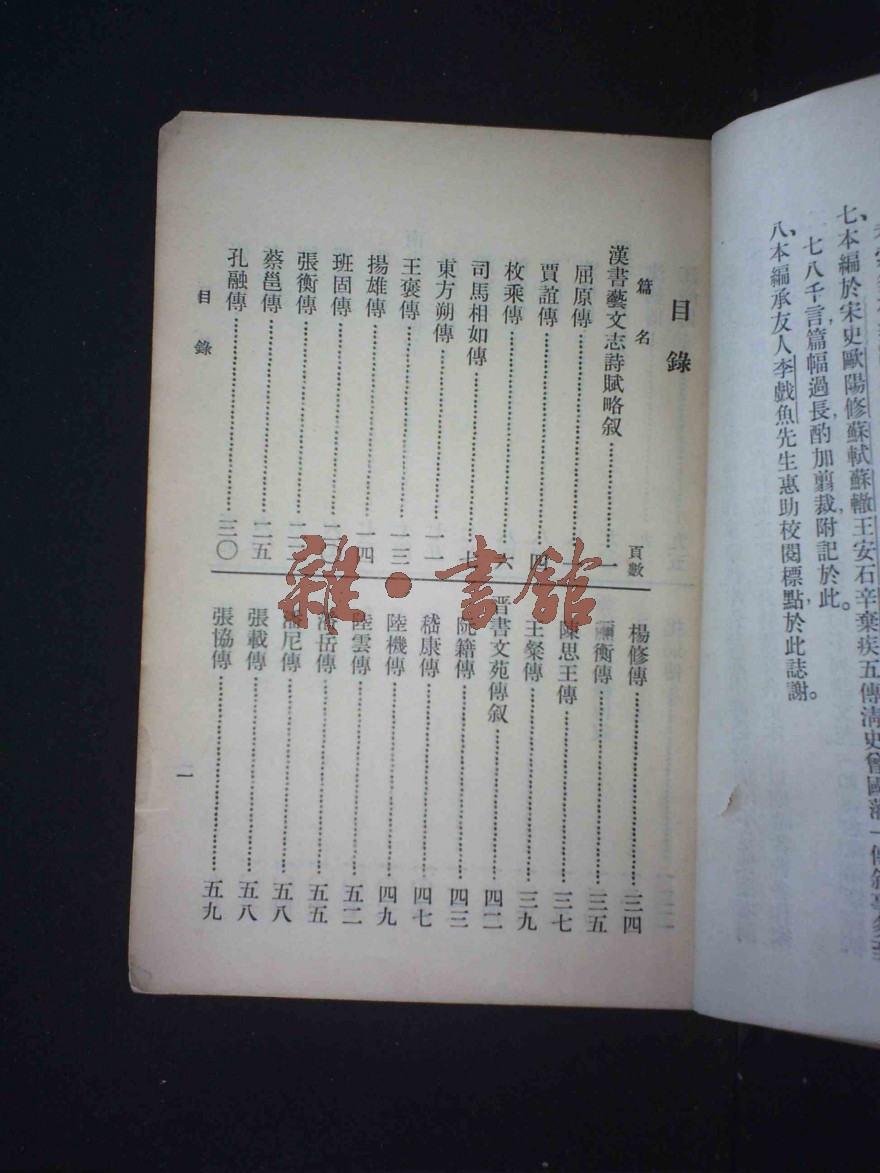 七、本編於宋史歐陽修蘇軾蘇轍王安石辛棄疾五傳清史曾國藩一傳
七八千言篇幅過長,酌加剪裁,附記於此。
八、本編承友人李戲魚先生惠助校閱標點於此誌謝。
目錄
篇名 頁數
漢書藝文志詩賦略叙 一
屈原傳
賈誼傳 四
枚乘傳 六
司馬相如傳 七
東方朔傳 一一
王褒傳 一三
揚雄傳 一四
班固傳 二〇
張衡傳 二二
蔡邕傳 二五
孔融傳 三〇
楊修傳 三四
禰衡傳 三五
陳思王傳 三七
王粲傳 三九
晋書文苑傳叙 四二
阮籍傳 四三
嵇康傳 四七
陸機傳 四九
陸雲傳 五二
潘岳傳 五五
潘尼傳 五八
張載傳 五八
張協傳 五九
目錄
一
雜·書館